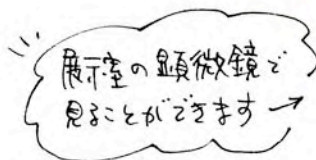 展示室の顕微鏡で
見ることができます→